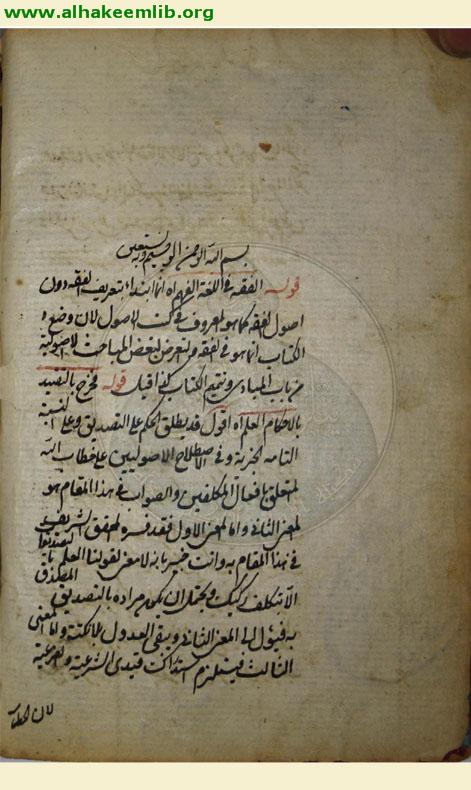 www.alhakeemlib.org
بسم الله الرحمن الرحيم وبه نستعين
قوله الفقه في اللغة الفهم اه انما ابتدا بتعريف الفقه دون
اصول الفقه كما هو المعروف في كتب الاصول لان وضع
الكتاب انما هو في الفقه والتعرض لبعض المباحث الاصولية
من باب المبادي وتتميم الكتاب كما قيل قوله فخرج بالتقييد
بالاحكام العلم اه اقول قد يطلق الحكم على التصديق وعلى النسبة
التامة الخبرية وفي الاصطلاح الاصوليين على خطاب الله
المتعلق بافعال المكلفين والصواب في هذا المقام هو
المعنى الثاني واما المعنى الاول فقد فسره المحقق الشريف
في هذا المقام به وانت خبير بانه لا معنى لقولنا العلم بالتصديقات
الا بتكلف ركيك ويحتمل ان يكون مراده بالتصديق المصدق
به فيئول الى المعنى الثاني ويبقى العدول بلا نكتة واما المعنى
الثالث فيستلزم استدراك قيدي الشرعية والفرعية
لان الخطاب